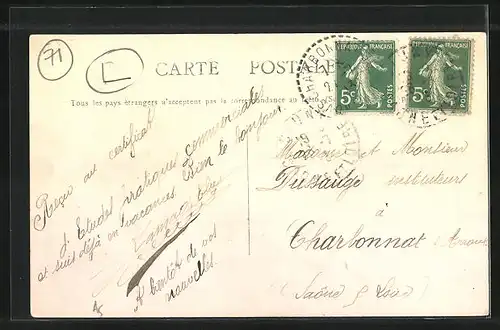 71
CARTE POSTALE
Tous les pays étrangers n'acceptent pas la correspondance au
REPUBLIQUE FRANÇAISE
5c POSTES
REPUBLIQUE FRANÇAISE
5c POSTES
Reçu au certificat
d'Etudes pratiques commerciales
et suis déjà en vacances. Bien le bonjour.
A bientôt de vos
nouvelles.
Madame et Monsieur
instituteurs
à
Charbonnat
(Saône & Loire)